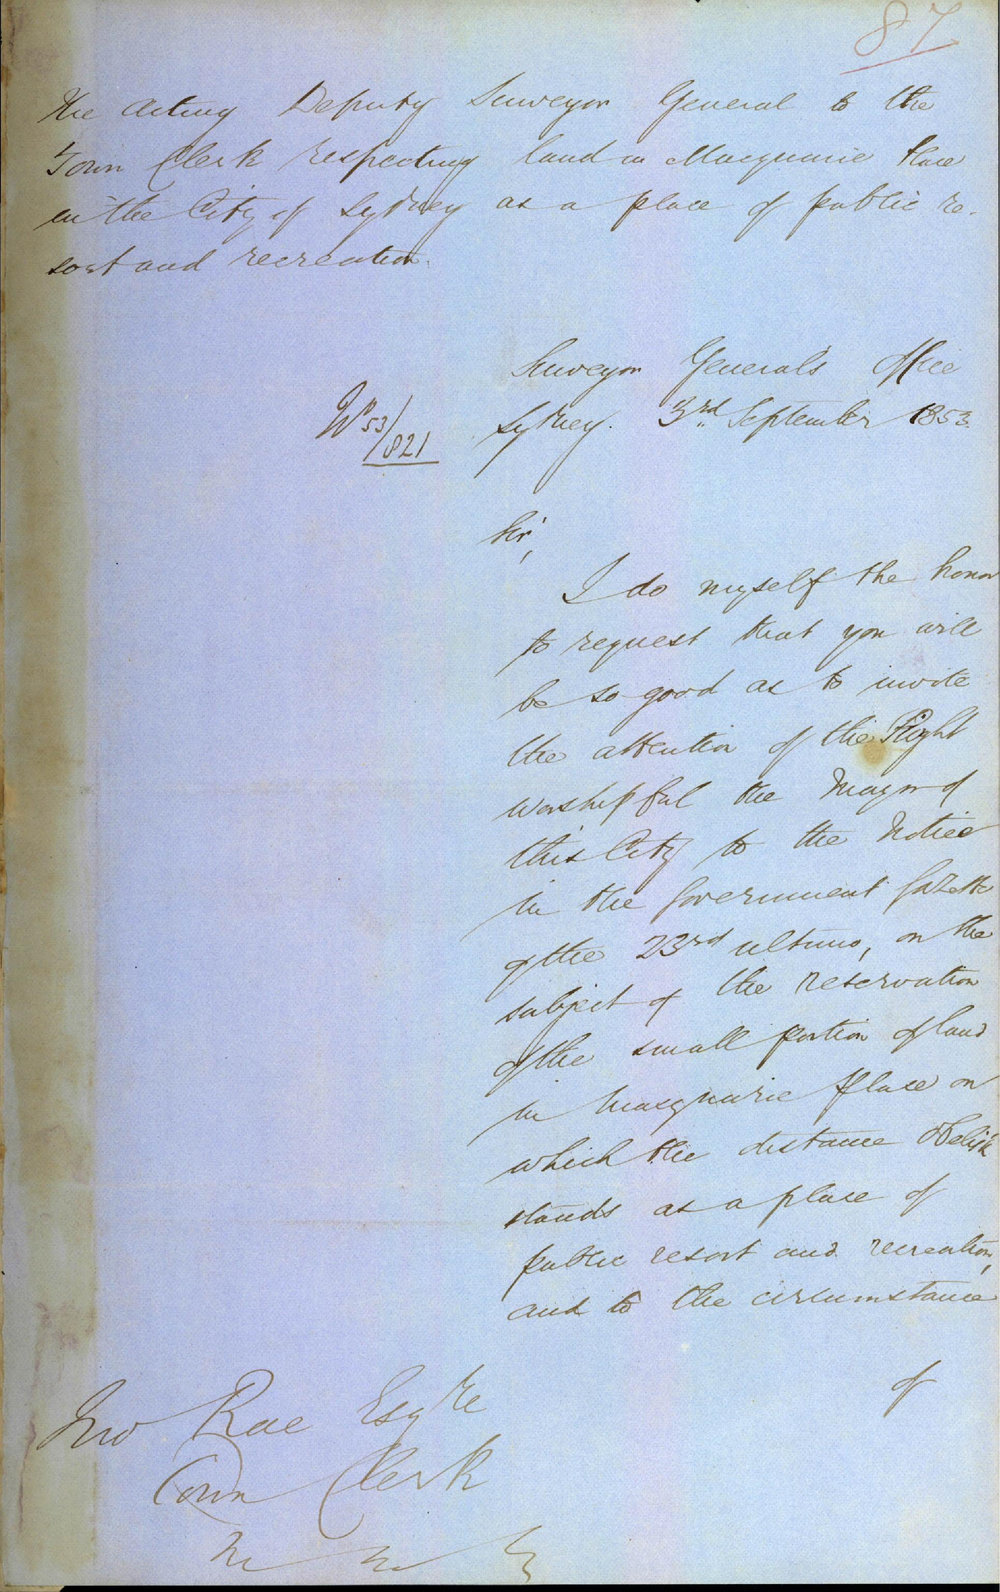 87
The Acting Deputy Surveyor General to the
Town Clerk respecting land in Macquarie Place
in the City of Sydney as a place of public re-
sort and recreation.
Surveyor General's Office
Sydney. 3rd September 1853.
53/821
Sir,
I do myself the honor
to request that you will
be so good as to invite
the attention of the Right
Worshipful the Mayor of
this City to the Notice
in the Government Gazette
of the 23rd ultimo, on the
subject of the reservation
of the small portion of land
in Macquarie Place on
which the distance Obelisk
stands as a place of
public resort and recreation,
and to the circumstance
of
Jno Rae Esqre
Town Clerk